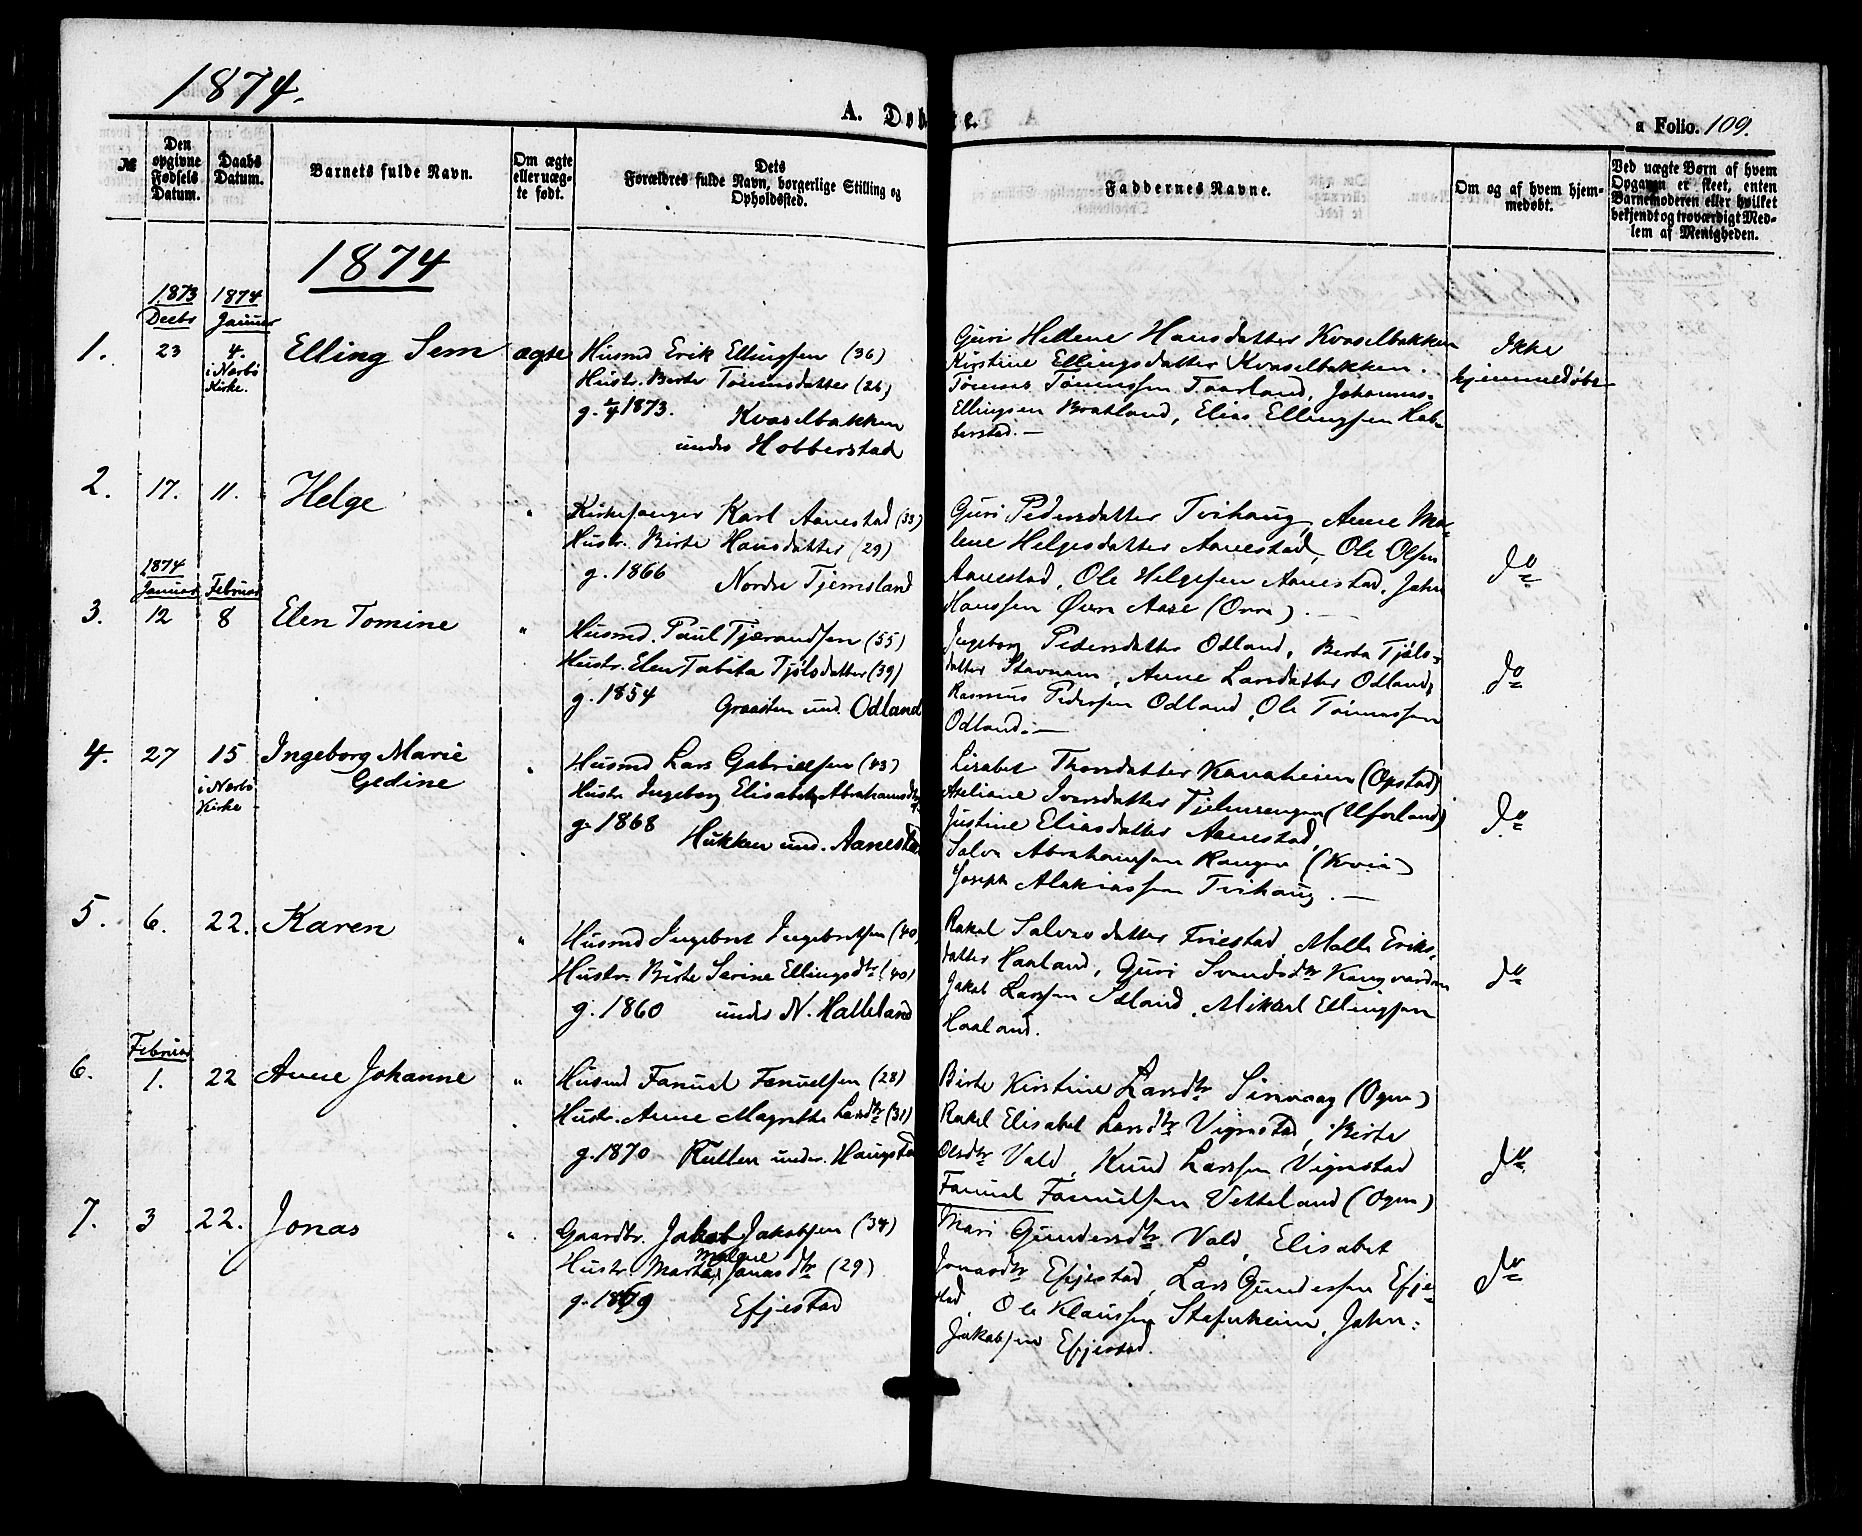 1874.
A. Døbte.
a Folio. 109.
№
Den opgivne Fødsels Datum.
Daabs Datum.
Barnets fulde Navn.
Om ægte eller uæg-te født.
Dets Forældres fulde Navn, borgerlige Stilling og Opholdssted.
Faddernes Navne.
Om og af hvem hjem-medøbt.
Ved uægte Børn af hvem Opgaven er skeet, enten Barnemoderen eller hvilket bekjendt og troværdigt Med-lem af Menigheden.
1874
1873 Decbr
1874 Januar
1. 23 4. i Nærbø Kirke. Elling Sem ægte
Husmd Erik Ellingsen (36)
Hustr. Birte Tønnesdatter (26)
g. 1873. Kvaselbakken
under Hobberstad
Guri Hellene Hansdatter Kvaselbakken
Kirstine Ellingsdatter Kvaselbakken.
Tønnes Tønnessen Taarland, Johannes
Ellingsen Bratland, Elias Ellingsen Hob-
berstad.—
Ikke
hjemmedøbt
2. 17. 11. Helge "
Kirkesanger Karl Aanestad (33)
Hustr. Birte Hansdatter (29)
g. 1866 Nordre Tjemsland
Guri Pedersdatter Tvihaug, Anne Ma-
lene Helgesdatter Aanestad, Ole Olsen
Aanestad, Ole Helgesen Aanestad, Jahn
Hanssen Øvre Aase (Orre).—
do
1874
Januar Februar
3. 12 8 Elen Tomine "
Husmd. Paul Tjærandsen (55)
Hustr. Elen Tabita Tjølsdatter (39)
g. 1854 Graasten und. Odland
Ingeborg Pedersdatter Odland, Berta Tjøls-
datter Stavnem, Anne Larsdatter Odland,
Rasmus Pedersen Odland, Ole Tønnessen
Odland.—
do
4. 27 15 i Nærbø Kirke Ingeborg Marie
Gedine "
Husmd Lars Gabrielsen (43)
Hustr. Ingeborg Elisabet Abrahamsdtr
g. 1868 Hukken und. Aanestad
Lisabet Thorsdatter Kanaheien (Opstad)
Axeliane Iversdatter Tjelmrengen (Ueland)
Justine Eliasdatter Aanestad,
Salve Abrahamsen Rangen (Kvia)
Joseph Alakiassen Tvihaug.—
do
5. 6. 22. Karen "
Husmd Ingebret Ingebretsen (40)
Hustr. Birte Serine Ellingsdtr (40)
g. 1860 under N. Halleland
Rakel Salvesdatter Friestad, Malle Eriks-
datter Haaland, Guri Svendsdtr Kongvarden
Jakob Larssen Odland, Mikael Ellingsen
Haaland.
do
Februar
6. 1. 22 Anne Johanne "
Husmd Fanuel Fanuelsen (28)
Hustr. Anne Magrethe Larsdtr (31)
g. 1870 Rullen under. Haugstad
Birte Kirstine Larsdtr Sirevaag (Ogne)
Rakel Elisabet Larsdtr Vigrestad, Birte
Olsdtr Vold, Knud Larssen Vigrestad
Fanuel Fanuelsen Vetteland (Ogne)
do
7. 3 22. Jonas "
Gaardbr. Jakob Jakobsen (34)
Hustr. Marta Malene Jonasdtr (29)
g. 1869 Efjestad
Mari Gundersdtr Vold, Elisabet
Jonasdtr Efjestad, Lars Gundersen Efje-
stad, Ole Klaussen Stefenheim, Jahn
Jakobsen Efjestad.
do